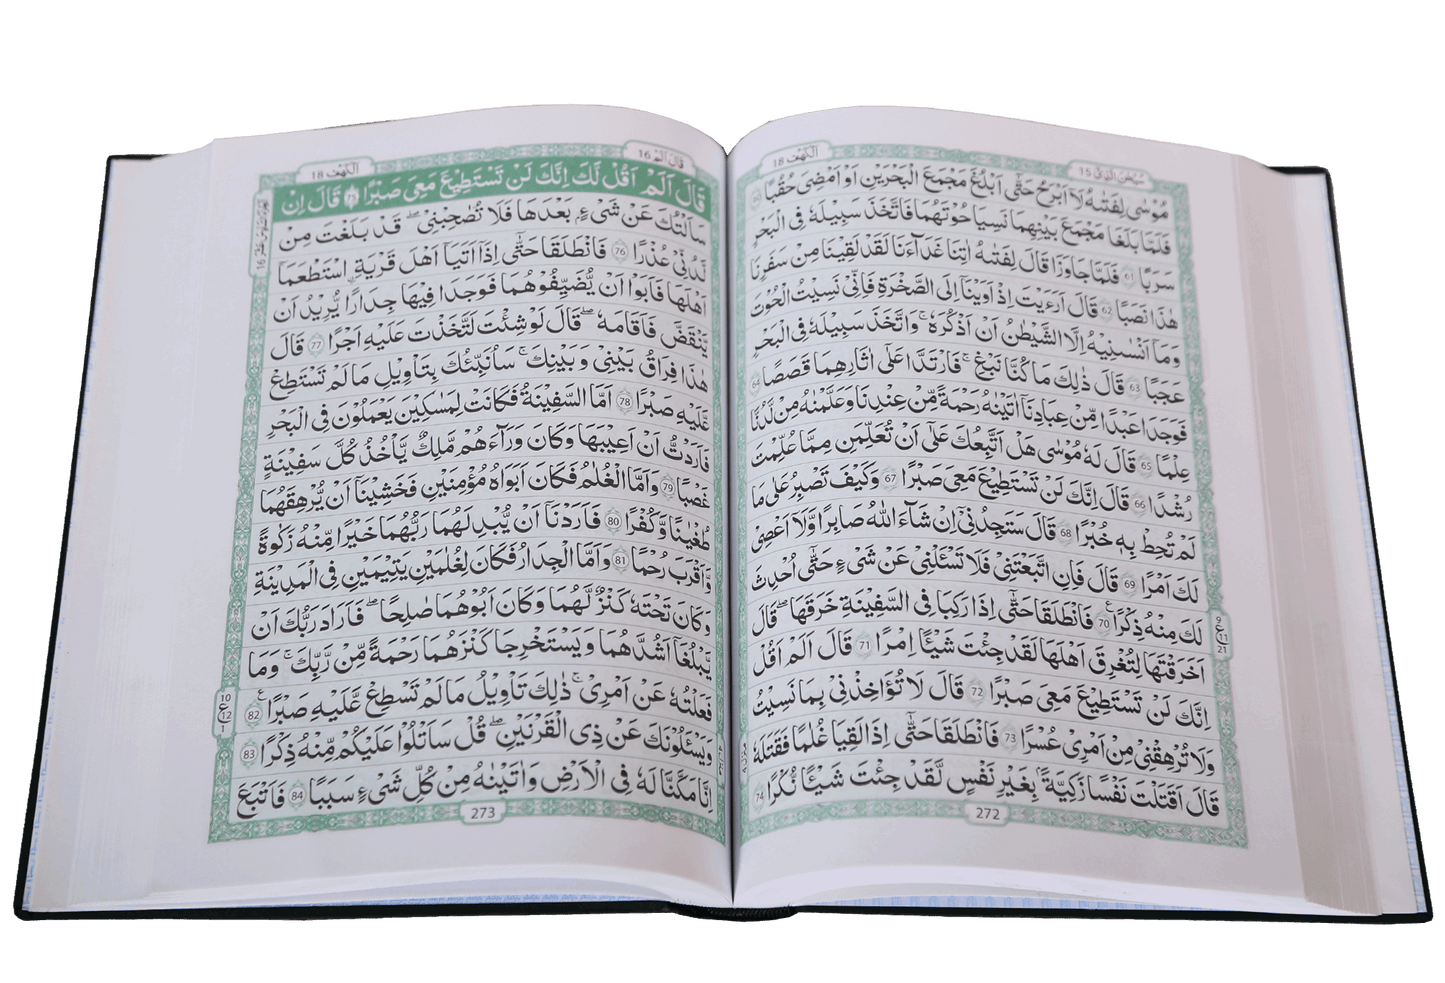 الكهف 18
سبحن الذي 15
مُوۡسٰى لِفَتٰىهُ لَاۤ اَبۡرَحُ حَتّٰۤى اَبۡلُغَ مَجۡمَعَ الۡبَحۡرَيۡنِ اَوۡ اَمۡضِىَ حُقُبًا
فَلَمَّا بَلَغَا مَجۡمَعَ بَيۡنِهِمَا نَسِيَا حُوۡتَهُمَا فَاتَّخَذَ سَبِيۡلَهٗ فِى الۡبَحۡرِ
سَرَبًا 61 فَلَمَّا جَاوَزَا قَالَ لِفَتٰىهُ اٰتِنَا غَدَآءَنَا لَقَدۡ لَقِيۡنَا مِنۡ سَفَرِنَا
هٰذَا نَصَبًا 62 قَالَ اَرَءَيۡتَ اِذۡ اَوَيۡنَاۤ اِلَى الصَّخۡرَةِ فَاِنِّىۡ نَسِيۡتُ الۡحُوۡتَ
وَمَاۤ اَنۡسٰٮنِيۡهُ اِلَّا الشَّيۡطٰنُ اَنۡ اَذۡكُرَهٗ‌ۚ وَاتَّخَذَ سَبِيۡلَهٗ فِى الۡبَحۡرِ
عَجَبًا 63 قَالَ ذٰلِكَ مَا كُنَّا نَبۡغِ‌ۖ فَارۡتَدَّا عَلٰٓى اٰثَارِهِمَا قَصَصًا 64
فَوَجَدَا عَبۡدًا مِّنۡ عِبَادِنَاۤ اٰتَيۡنٰهُ رَحۡمَةً مِّنۡ عِنۡدِنَا وَعَلَّمۡنٰهُ مِنۡ لَّدُنَّا
عِلۡمًا 65 قَالَ لَهٗ مُوۡسٰى هَلۡ اَتَّبِعُكَ عَلٰٓى اَنۡ تُعَلِّمَنِ مِمَّا عُلِّمۡتَ
رُشۡدًا 66 قَالَ اِنَّكَ لَنۡ تَسۡتَطِيۡعَ مَعِىَ صَبۡرًا 67 وَكَيۡفَ تَصۡبِرُ عَلٰى مَا
لَمۡ تُحِطۡ بِهٖ خُبۡرًا 68 قَالَ سَتَجِدُنِىۡۤ اِنۡ شَآءَ اللّٰهُ صَابِرًا وَّلَاۤ اَعۡصِىۡ
لَكَ اَمۡرًا 69 قَالَ فَاِنِ اتَّبَعۡتَنِىۡ فَلَا تَسۡــَٔلۡنِىۡ عَنۡ شَىۡءٍ حَتّٰٓى اُحۡدِثَ
لَكَ مِنۡهُ ذِكۡرًا 70 فَانْطَلَقَا حَتّٰۤى اِذَا رَكِبَا فِى السَّفِيۡنَةِ خَرَقَهَا‌ؕ قَالَ
اَخَرَقۡتَهَا لِتُغۡرِقَ اَهۡلَهَا‌ لَقَدۡ جِئۡتَ شَيۡــًٔا اِمۡرًا 71 قَالَ اَلَمۡ اَقُلۡ
اِنَّكَ لَنۡ تَسۡتَطِيۡعَ مَعِىَ صَبۡرًا 72 قَالَ لَا تُؤَاخِذۡنِىۡ بِمَا نَسِيۡتُ
وَلَا تُرۡهِقۡنِىۡ مِنۡ اَمۡرِىۡ عُسۡرًا 73 فَانْطَلَقَا حَتّٰۤى اِذَا لَقِيَا غُلٰمًا فَقَتَلَهٗ
قَالَ اَقَتَلۡتَ نَفۡسًا زَكِيَّةً بِغَيۡرِ نَفۡسٍ لَّقَدۡ جِئۡتَ شَيۡــًٔا نُّكۡرًا 74
272
9
ع
11
21
الكهف 18
قال الم 16
قَالَ اَلَمۡ اَقُلْ لَّكَ اِنَّكَ لَنۡ تَسۡتَطِيۡعَ مَعِىَ صَبۡرًا 75 قَالَ اِنۡ
سَاَلۡتُكَ عَنۡ شَىۡءٍۢ بَعۡدَهَا فَلَا تُصٰحِبۡنِىۡ‌ ۚ قَدۡ بَلَغۡتَ مِنۡ
لَّدُنِّىۡ عُذۡرًا 76 فَانْطَلَقَا حَتّٰۤى اِذَاۤ اَتَيَاۤ اَهۡلَ قَرۡيَةِ اۨسۡتَطۡعَمَاۤ
اَهۡلَهَا فَاَبَوۡا اَنۡ يُّضَيِّفُوۡهُمَا فَوَجَدَا فِيۡهَا جِدَارًا يُّرِيۡدُ اَنۡ
يَّنۡقَضَّ فَاَقَامَهٗ‌ ؕ قَالَ لَوۡ شِئۡتَ لَـتَّخَذۡتَ عَلَيۡهِ اَجۡرًا 77 قَالَ
هٰذَا فِرَاقُ بَيۡنِىۡ وَبَيۡنِكَ‌ ۚ سَاُنَـبِّئُكَ بِتَاۡوِيۡلِ مَا لَمۡ تَسۡتَطِعْ
عَّلَيۡهِ صَبۡرًا 78 اَمَّا السَّفِيۡنَةُ فَكَانَتۡ لِمَسٰكِيۡنَ يَعۡمَلُوۡنَ فِى الۡبَحۡرِ
فَاَرَدْتُّ اَنۡ اَعِيۡبَهَا وَكَانَ وَرَآءَهُمۡ مَّلِكٌ يَّاۡخُذُ كُلَّ سَفِيۡنَةٍ
غَصۡبًا 79 وَاَمَّا الۡغُلٰمُ فَكَانَ اَبَوٰهُ مُؤۡمِنَيۡنِ فَخَشِيۡنَاۤ اَنۡ يُّرۡهِقَهُمَا
طُغۡيَانًا وَّكُفۡرًا 80 فَاَرَدۡنَاۤ اَنۡ يُّبۡدِلَهُمَا رَبُّهُمَا خَيۡرًا مِّنۡهُ زَكٰوةً
وَّاَقۡرَبَ رُحۡمًا 81 وَاَمَّا الۡجِدَارُ فَكَانَ لِغُلٰمَيۡنِ يَتِيۡمَيۡنِ فِى الۡمَدِيۡنَةِ
وَكَانَ تَحۡتَهٗ كَنۡزٌ لَّهُمَا وَكَانَ اَبُوۡهُمَا صَالِحًـا ۚ فَاَرَادَ رَبُّكَ اَنۡ
يَّبۡلُغَاۤ اَشُدَّهُمَا وَيَسۡتَخۡرِجَا كَنۡزَهُمَا رَحۡمَةً مِّنۡ رَّبِّكَ‌‌ ۚ وَمَا
فَعَلۡتُهٗ عَنۡ اَمۡرِىۡ‌ ؕ ذٰلِكَ تَاۡوِيۡلُ مَا لَمۡ تَسۡطِعْ عَّلَيۡهِ صَبۡرًا 82
وَيَسۡــَٔلُوۡنَكَ عَنۡ ذِى الۡقَرۡنَيۡنِ‌ ؕ قُلۡ سَاَتۡلُوۡا عَلَيۡكُمۡ مِّنۡهُ ذِكۡرًا 83
اِنَّا مَكَّنَّا لَهٗ فِى الۡاَرۡضِ وَاٰتَيۡنٰهُ مِنۡ كُلِّ شَىۡءٍ سَبَبًا 84 فَاَ تۡبَعَ
273
10
ع
12
1